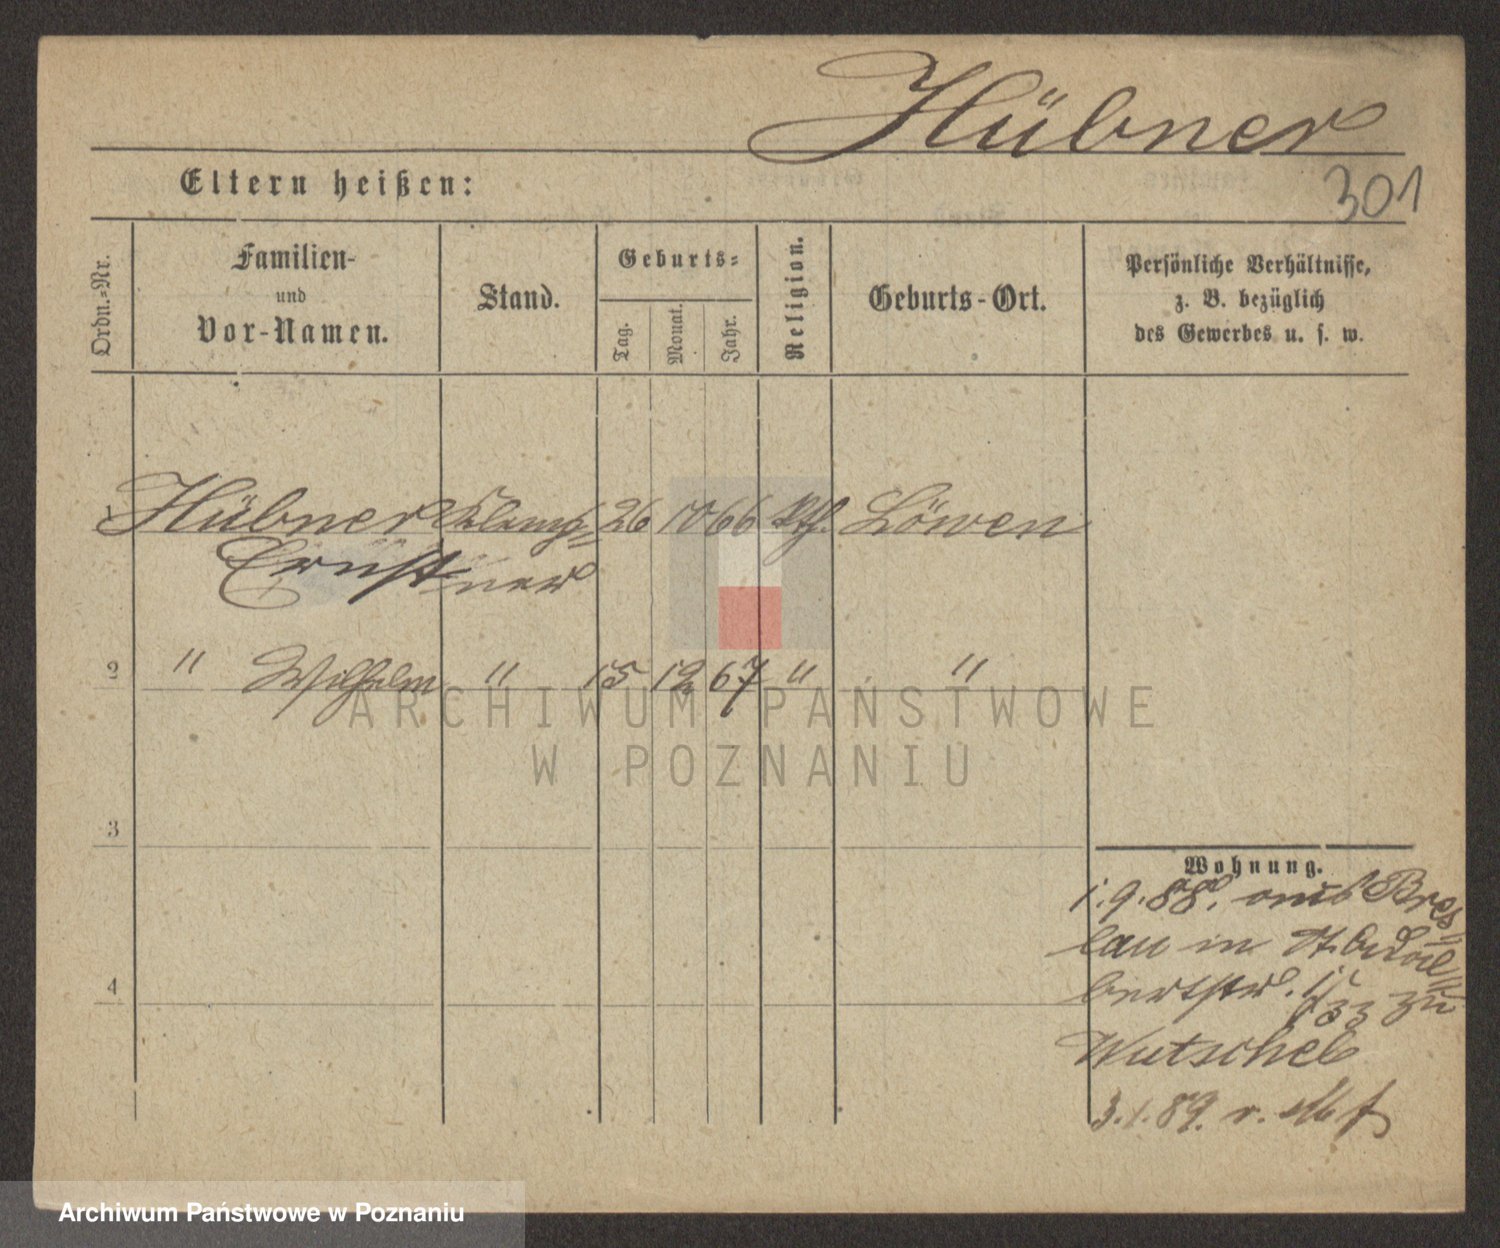 Hübner
Eltern heißen:
301
Ordn.-Nr.
Familien-
und
Vor-Namen.
Stand.
Geburts-
Tag.
Monat.
Jahr.
Religion.
Geburts-Ort.
Persönliche Verhältnisse,
z. B. bezüglich
des Gewerbes u. s. w.
1 Hübner Klemp= 26 10 66 Kth. Löwen
Ernst ner
2 " Wilhelm " 15 12 67 " "
3
4
Wohnung.
1.9.88. aus Bres=
lau in
bertstr. zu
Wutschel
3.1.89. n.
ARCHIWUM PAŃSTWOWE
W POZNANIU
Archiwum Państwowe w Poznaniu